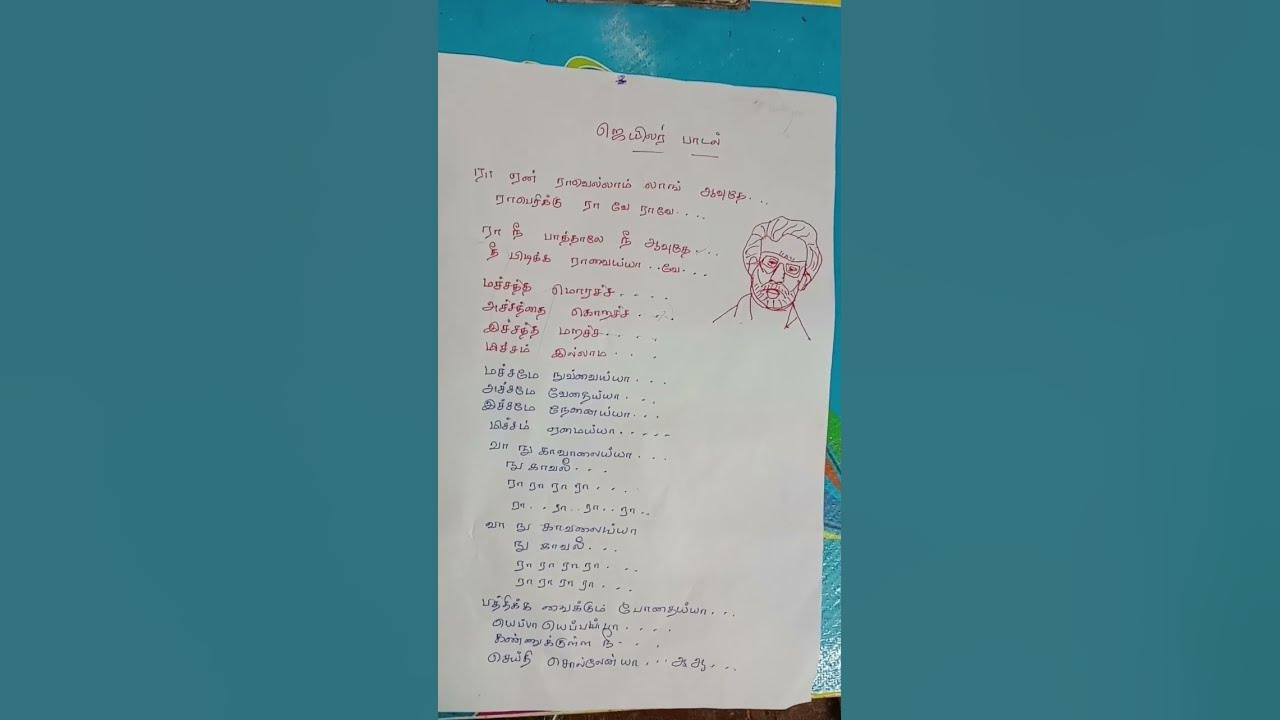 ஜெயிலர் பாடல்
ரா ஏன் ராவெல்லாம் லாங் ஆவுதே...
ராவெரிக்கு ரா வே ராவே....
ரா நீ பாத்தாலே நீ ஆவுதே....
தீ பிடிக்க ராவைய்யா..வே...
மச்சத்த மொரச்ச....
அச்சத்தை கொறச்ச...
இச்சத்த மறச்ச.....
மிச்சம் இல்லாம...
மச்சமே நுவ்வைய்யா...
அச்சமே வேதைய்யா...
இச்சமே நேனைய்யா...
மிச்சம் ஏமைய்யா.....
வா நு காவாலைய்யா...
நு காவலி...
ரா ரா ரா ரா....
ரா..ரா..ரா..ரா..
வா நு காவலைய்யா
நு காவலி...
ரா ரா ரா ரா...
ரா ரா ரா ரா...
பத்திக்க வைக்கும் போதைய்யா...
கண்ணுக்குள்ள நீ...
செய்தி ...ஆ ஆ...